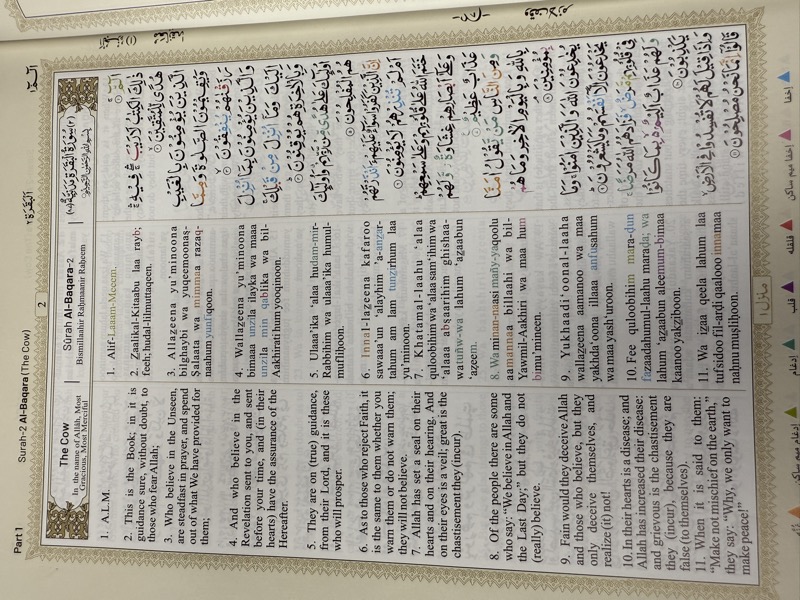 Part 1
Surah-2 Al-Baqara (The Cow)
2
البقرة ٢
الٓمّٓ ١
The Cow
In the name of Allâh, Most
Gracious, Most Merciful
Sûrah Al-Baqara-2
Bismillaahir Rahmaanir Raheem
1. A.L.M.
2. This is the Book; in it is
guidance sure, without doubt, to
those who fear Allah;
3. Who believe in the Unseen,
are steadfast in prayer, and spend
out of what We have provided for
them;
4. And who believe in the
Revelation sent to you, and sent
before your time, and (in their
hearts) have the assurance of the
Hereafter.
5. They are on (true) guidance,
from their Lord, and it is these
who will prosper.
6. As to those who reject Faith, it
is the same to them whether you
warn them or do not warn them;
they will not believe.
7. Allah has set a seal on their
hearts and on their hearing. And
on their eyes is a veil; great is the
chastisement they (incur).
8. Of the people there are some
who say: “We believe in Allah and
the Last Day;” but they do not
(really) believe.
9. Fain would they deceive Allah
and those who believe, but they
only deceive themselves, and
realize (it) not!
10 In their hearts is a disease; and
Allah has increased their disease:
and grievous is the chastisement
they (incur), because they are
false (to themselves).
11. When it is said to them:
“Make not mischief on the earth,”
they say: “Why, we only want to
make peace!”
1. Alif-Laaam-Meeem.
2. Zaalikal-Kitaabu laa rayb;
feeh; hudal-lilmuttaqeen.
3. Allazeena yu’minoona
bilghaybi wa yuqeemoonaṣ-
Ṣalaata wa mimmaa razaq-
naahum yunfiqoon.
4. Wallazeena yu’minoona
bimaaa unzila ilayka wa maaa
unzila min qablika wa bil-
Aakhirati hum yooqinoon.
5. Ulaaa’ika ‘alaa hudam-mir-
Rabbihim wa ulaaa’ika humul-
mufliḥoon.
6. Innal-lazeena kafaroo
sawaaa ’un ‘alayhim ’a-anzar-
tahum am lam tunzirhum laa
yu’minoon.
7. Khatamal-laahu ‘alaa
quloobihim wa ‘alaa sam‘ihim wa
‘alaaa abṣaarihim ghishaa-
watuñw-wa lahum ‘azaabun
‘azeem.
8. Wa minan-naasi mañy-yaqoolu
aamannaa billaahi wa bil-
Yawmil-Aakhiri wa maa hum
bimu’mineen.
9. Yukhaadi‘oonal-laaha
wallazeena aamanoo wa maa
yakhda‘oona illaaa anfusahum
wa maa yash‘uroon.
10. Fee quloobihim maraḍun
fazaadahumul-laahu maraḍaa; wa
lahum ‘azaabun aleemum-bimaa
kaanoo yakziboon.
11. Wa izaa qeela lahum laa
tufsidoo fil-arḍi qaalooo innamaa
naḥnu muṣliḥoon.
الٓمّٓ
ذٰلِكَ الْكِتٰبُ لَا رَيْبَ فِيْهِ
هُدًى لِّلْمُتَّقِيْنَ
الَّذِيْنَ يُؤْمِنُوْنَ بِالْغَيْبِ
وَيُقِيْمُوْنَ الصَّلٰوةَ وَمِمَّا
رَزَقْنٰهُمْ يُنْفِقُوْنَ
وَالَّذِيْنَ يُؤْمِنُوْنَ بِمَآ اُنْزِلَ
اِلَيْكَ وَمَآ اُنْزِلَ مِنْ قَبْلِكَ
وَبِالْاٰخِرَةِ هُمْ يُوْقِنُوْنَ
اُولٰٓئِكَ عَلٰى هُدًى مِّنْ رَّبِّهِمْ وَاُولٰٓئِكَ
هُمُ الْمُفْلِحُوْنَ
اِنَّ الَّذِيْنَ كَفَرُوْا سَوَآءٌ عَلَيْهِمْ ءَاَنْذَرْتَهُمْ
اَمْ لَمْ تُنْذِرْهُمْ لَا يُؤْمِنُوْنَ
خَتَمَ اللّٰهُ عَلٰى قُلُوْبِهِمْ وَعَلٰى سَمْعِهِمْ
وَعَلٰٓى اَبْصَارِهِمْ غِشَاوَةٌ وَّلَهُمْ
عَذَابٌ عَظِيْمٌ
وَمِنَ النَّاسِ مَنْ يَّقُوْلُ اٰمَنَّا
بِاللّٰهِ وَبِالْيَوْمِ الْاٰخِرِ وَمَا هُمْ
بِمُؤْمِنِيْنَ
يُخٰدِعُوْنَ اللّٰهَ وَالَّذِيْنَ اٰمَنُوْا وَمَا
يَخْدَعُوْنَ اِلَّآ اَنْفُسَهُمْ وَمَا يَشْعُرُوْنَ
فِيْ قُلُوْبِهِمْ مَّرَضٌ فَزَادَهُمُ اللّٰهُ مَرَضًا
وَلَهُمْ عَذَابٌ اَلِيْمٌ بِمَا كَانُوْا
يَكْذِبُوْنَ
وَاِذَا قِيْلَ لَهُمْ لَا تُفْسِدُوْا فِى الْاَرْضِ
قَالُوْٓا اِنَّمَا نَحْنُ مُصْلِحُوْنَ
منزل ١
ادغام
قلب
قلقله
اخفا ميم ساكن
اخفا